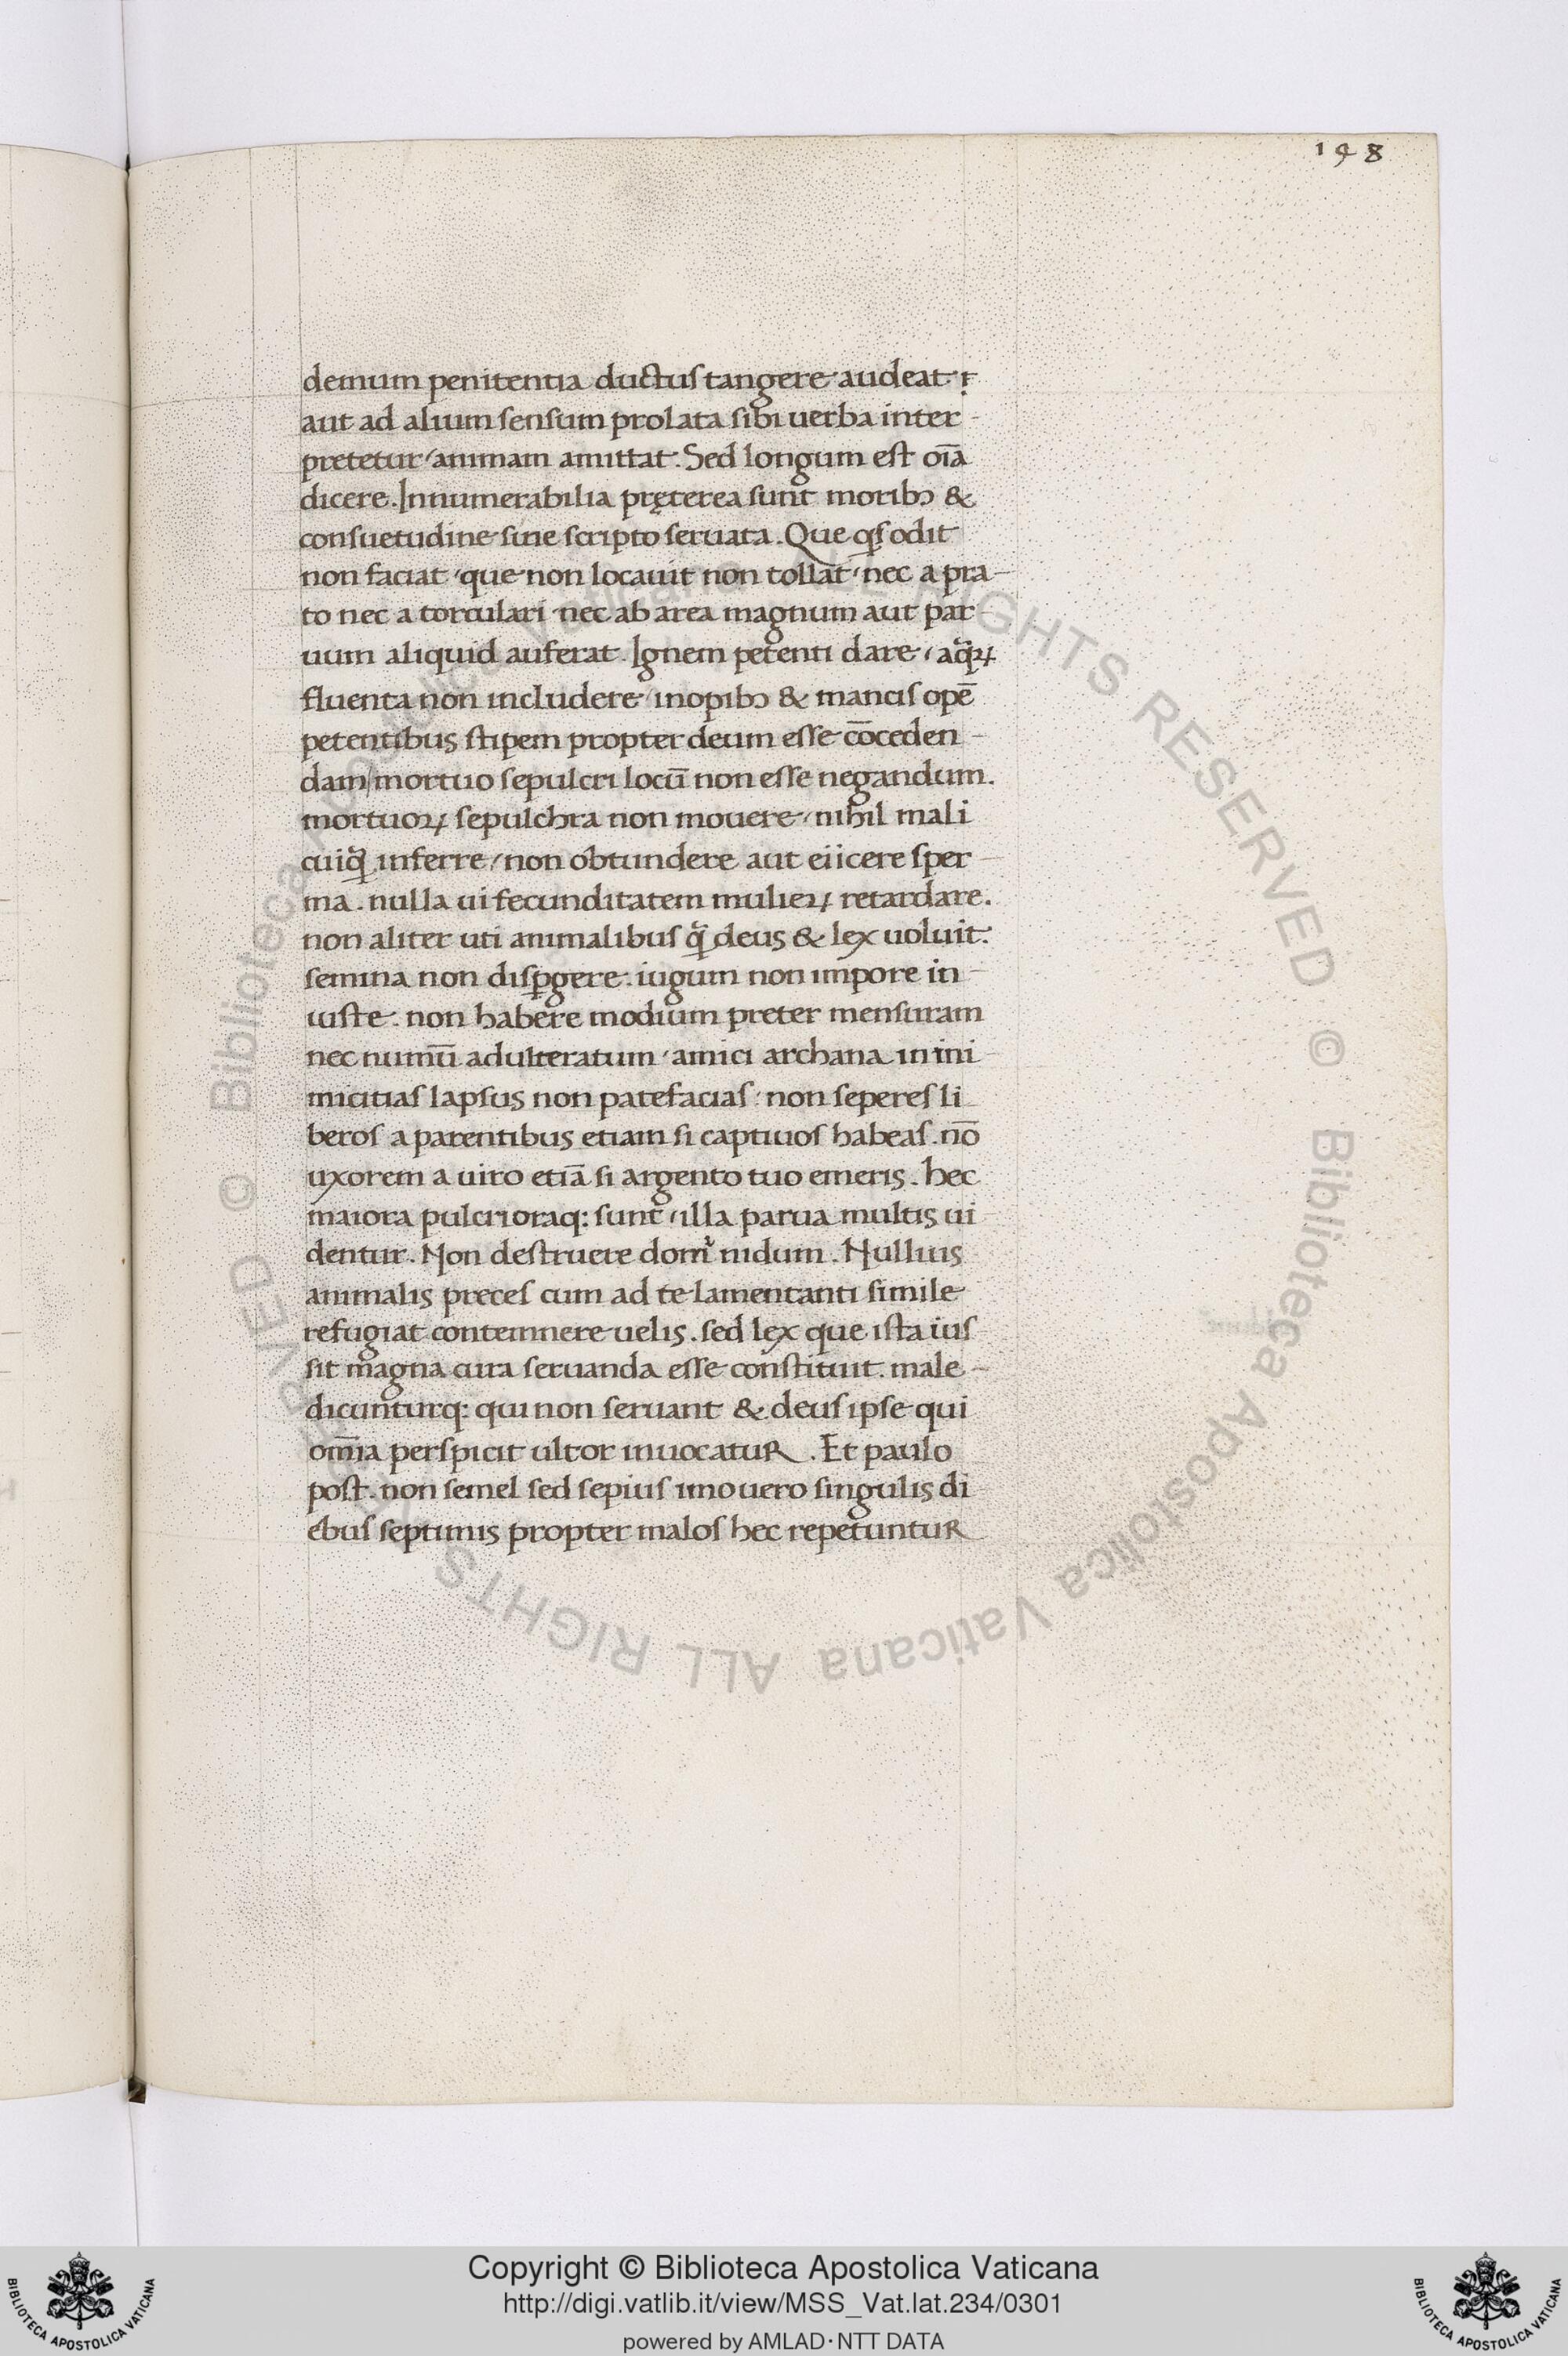 198
demum penitentia ductus tangere audeat:
aut ad alium sensum prolata sibi uerba inter-
pretetur animam amittat. Sed longum est oīa
dicere. Innumerabilia pręterea sunt moribꝫ &
consuetudine sine scripto seruata. Que qͥs odit
non faciat, que non locauit non tollat, nec a pra-
to nec a torculari nec ab area magnum aut par-
uum aliquid auferat. Ignem petenti dare, aqͣꝝ
fluenta non includere, inopibꝫ & mancis opē
petentibus stipem propter deum esse cōceden-
dam/mortuo sepulcri locū non esse negandum.
mortuoꝝ sepulchra non mouere, nihil mali
cuiqͣ inferre, non obtundere aut eiicere sper-
ma. nulla ui fecunditatem mulieꝝ retardare.
non aliter uti animalibus qͣ deus & lex uoluit.
semina non disꝑgere. iugum non impore in-
iuste. non habere modium preter mensuram
nec numū adulteratum, amici archana in ini-
micitias lapsus non patefacias, non seperes li-
beros a parentibus etiam si captiuos habeas. nō
uxorem a uiro etiā si argento tuo emeris. hec
maiora pulcrioraq: sunt, illa parua multis ui-
dentur. Non destruere domͥ nidum. Nullius
animalis preces cum ad te lamentanti simile
refugiat contemnere uelis. sed lex que ista ius-
sit magna cura seruanda esse constituit. male-
dicunturq: qui non seruant & deus ipse qui
om̄ia perspicit ultor inuocatur. Et paulo
post. non semel sed sepius imo uero singulis di-
ebus septimis propter malos hec repetuntur
© Biblioteca Apostolica Vaticana ALL RIGHTS RESERVED © Biblioteca Apostolica Vaticana ALL RIGHTS RESERVED
Copyright © Biblioteca Apostolica Vaticana
http://digi.vatlib.it/view/MSS_Vat.lat.234/0301
powered by AMLAD·NTT DATA
BIBLIOTECA APOSTOLICA VATICANA
BIBLIOTECA APOSTOLICA VATICANA